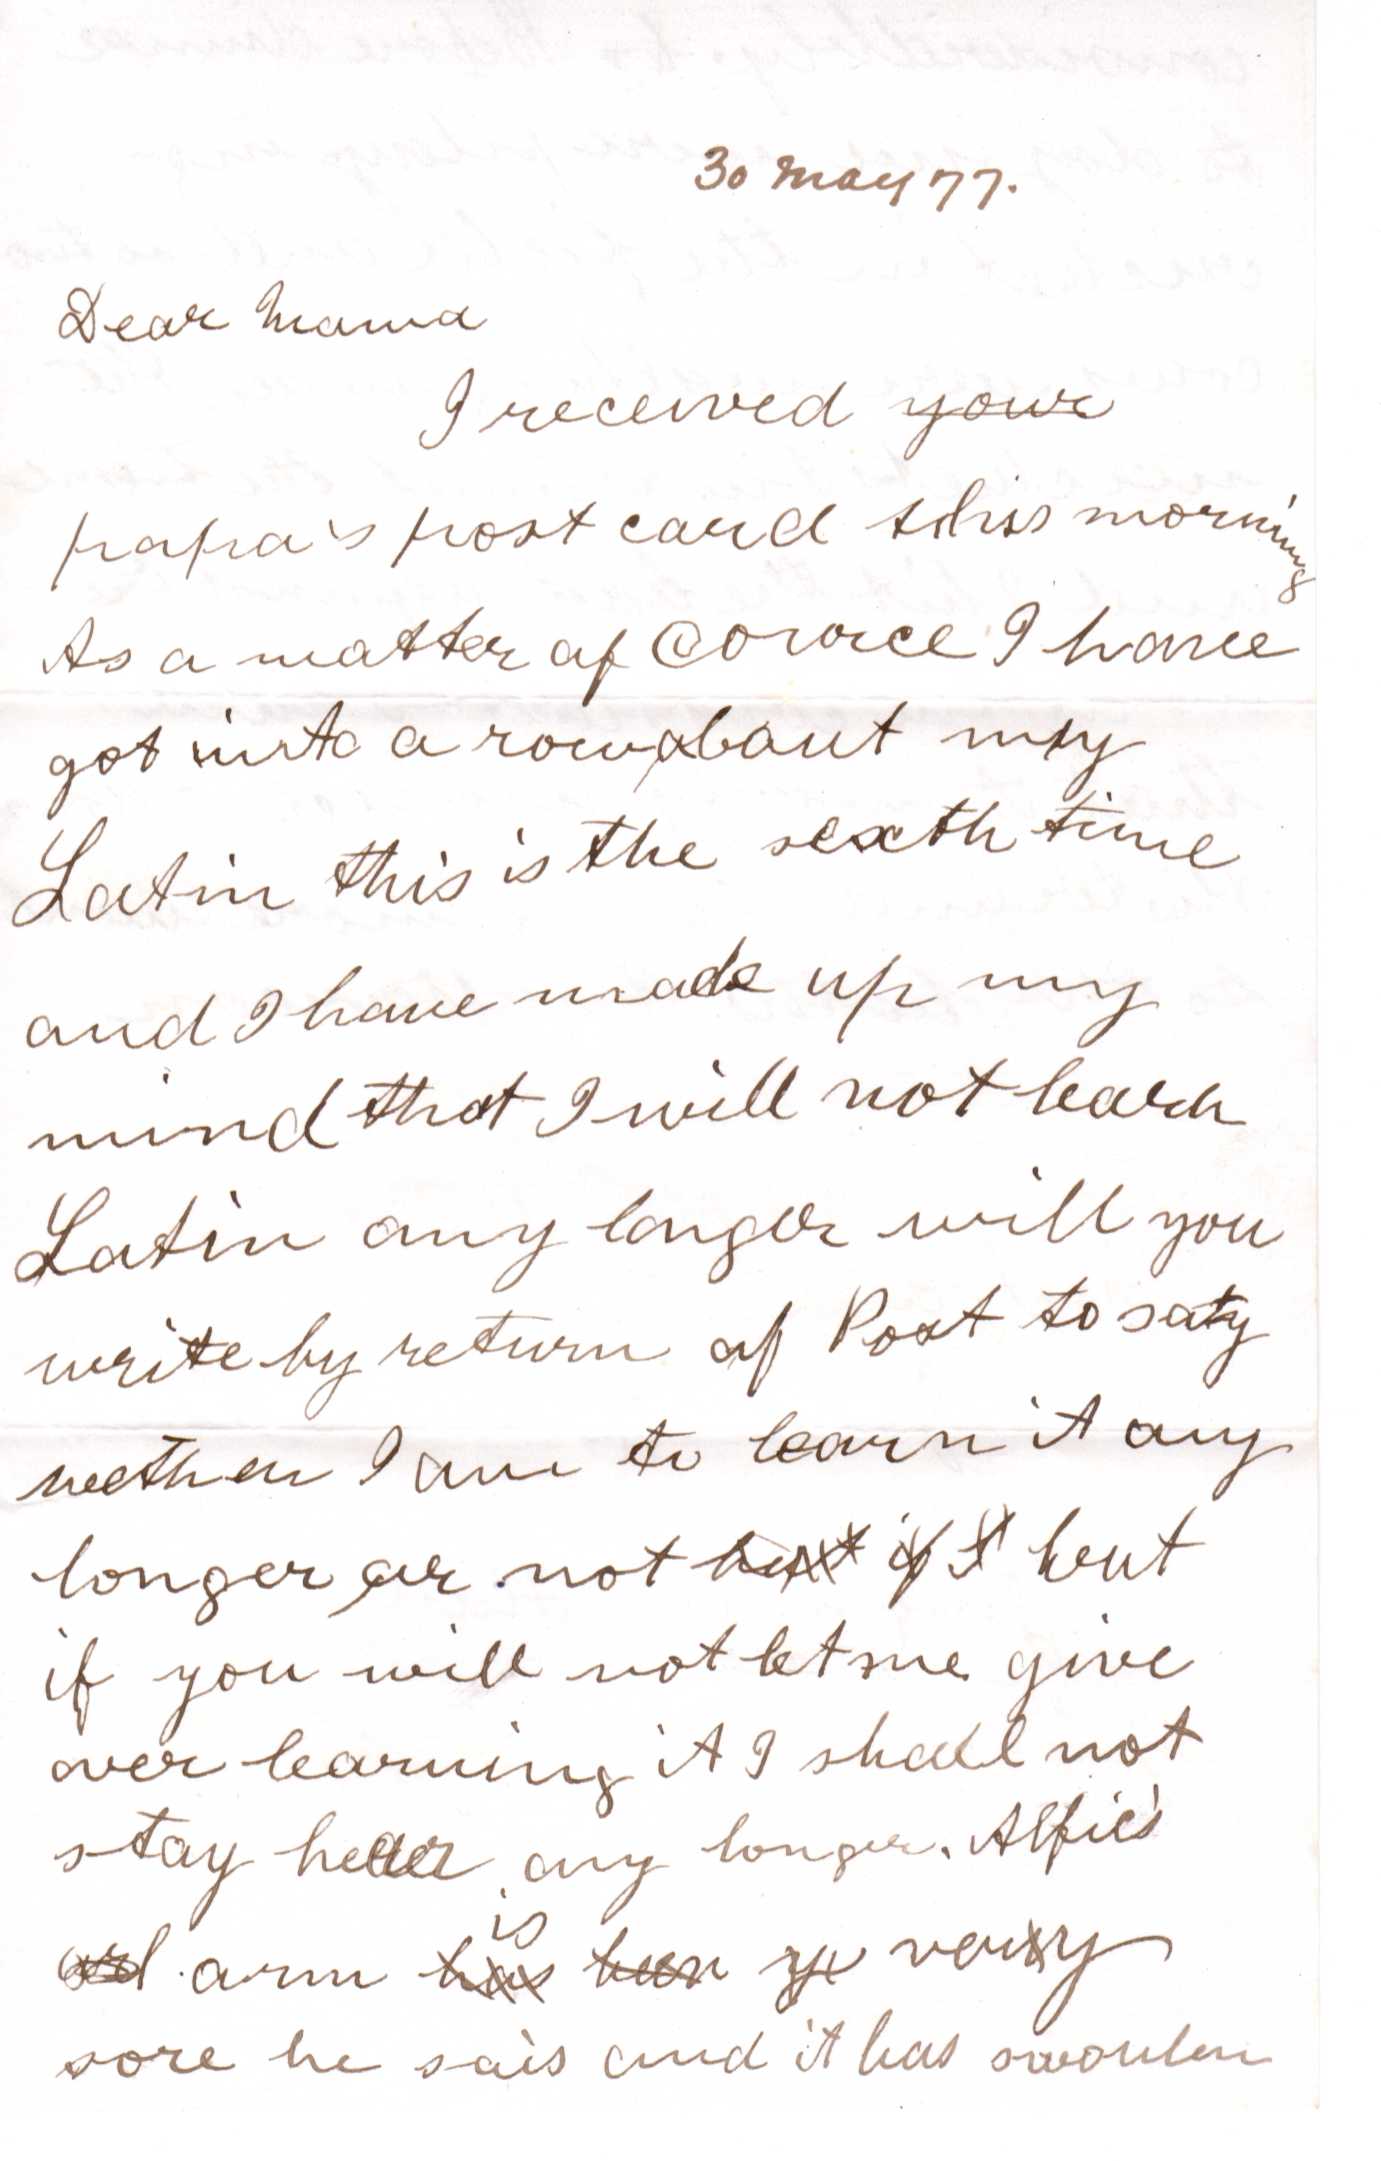 30 May 77.
Dear Mama
I received your
papa's post card this morning
As a matter of Cource I have
got into a row about my
Latin this is the sexth time
and I have made up my
mind that I will not learn
Latin any longer will you
write by return of Post to saty
wether I am to learn it any
longer or not but if I but
if you will not let me give
over learning it I shall not
stay hear any longer. Alfie's
arm is has been very
sore he sais and it has swoulen